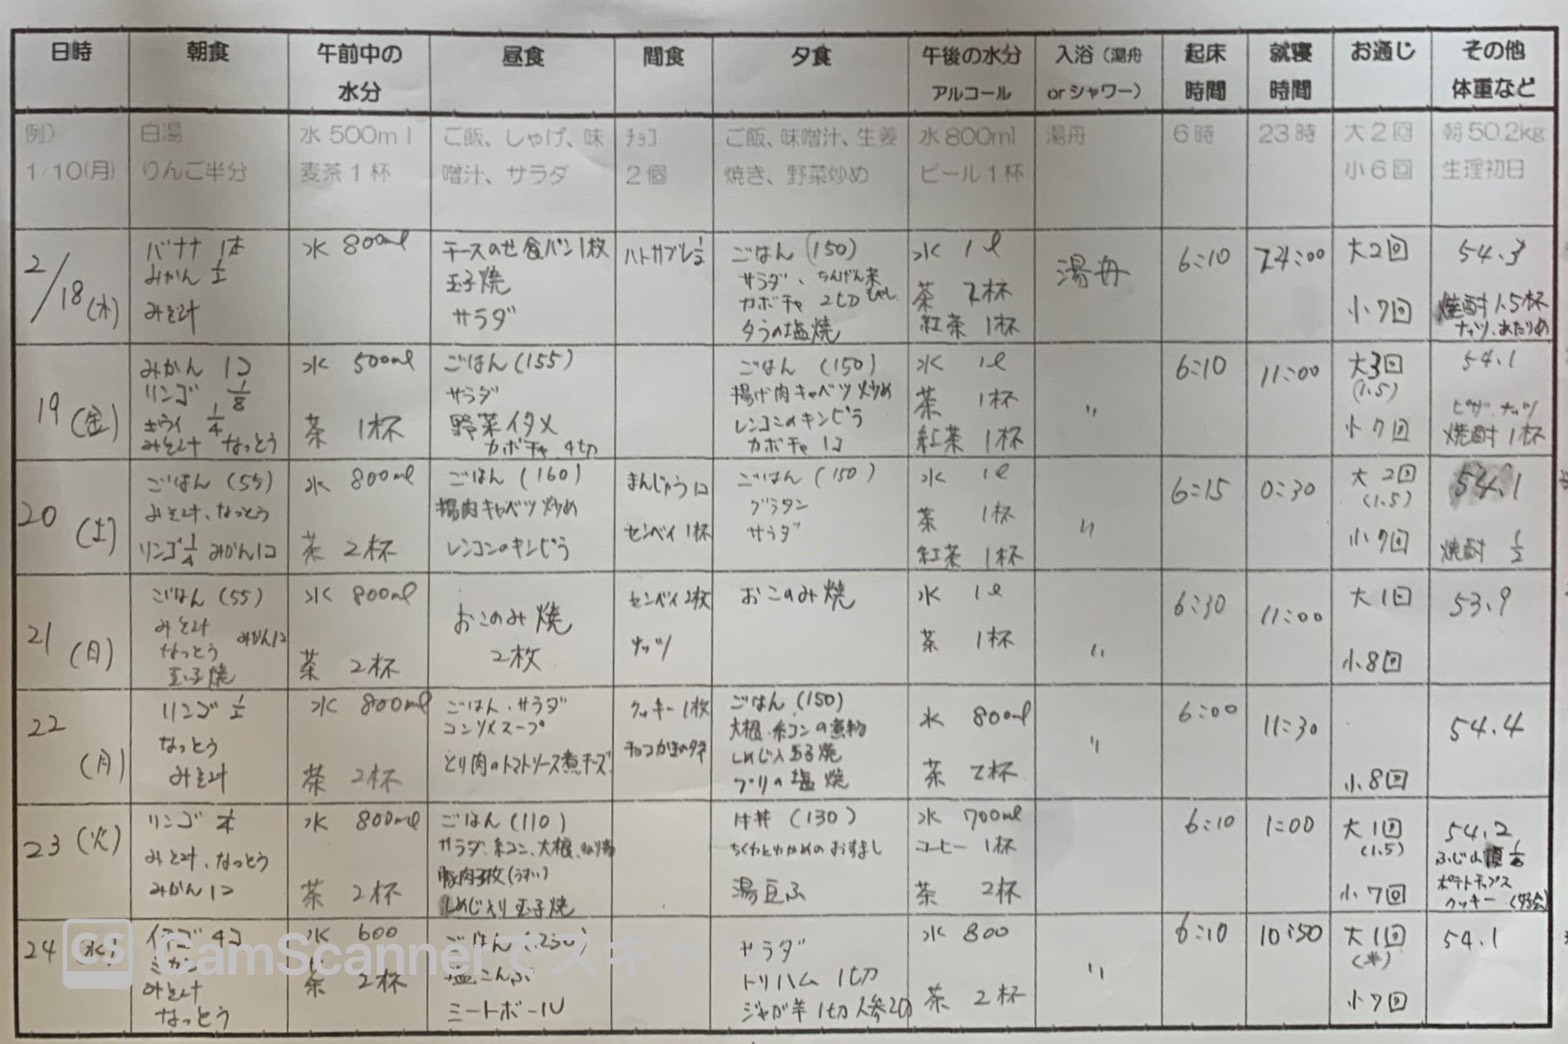 日時
朝食
午前中の
水分
昼食
間食
夕食
午後の水分
アルコール
入浴（湯舟
orシャワー）
起床
時間
就寝
時間
お通じ
その他
体重など
例）
1/10(月)
白湯
りんご半分
水500ml
麦茶1杯
ご飯、しゃげ、味
噌汁、サラダ
ﾁｮｺ
2個
ご飯、味噌汁、生姜
焼き、野菜炒め
水800ml
ビール1杯
湯舟
6時
23時
大2回
小6回
朝50.2kg
生理初日
2/18(木)
バナナ 1本
みかん 1/2
みそ汁
水 800ml
チーズのせ食パン1枚
玉子焼
サラダ
ハトサブレ1/2
ごはん (150)
サラダ、ちんげん菜
カボチャ 2切
タラの塩焼
水 1l
茶 2杯
紅茶 1杯
湯舟
6:10
24:00
大2回
小7回
54.3
焼酎1.5杯
ナッツ、あたりめ
19(金)
みかん 1コ
リンゴ 1/8
キウイ 1/4
みそ汁 なっとう
水 500ml
茶 1杯
ごはん(155)
サラダ
野菜イタメ
カボチャ 4切
ごはん (150)
揚げ肉キャベツ炒め
レンコンのキンピラ
カボチャ 1コ
水 1l
茶 1杯
紅茶 1杯
〃
6:10
11:00
大3回
(1.5)
小7回
54.1
ピザ ナッツ
焼酎1杯
20(土)
ごはん(55)
みそ汁、なっとう
リンゴ1/4 みかん1コ
水 800ml
茶 2杯
ごはん (160)
揚肉キャベツ炒め
レンコンのキンピラ
まんじゅう1コ
センベイ1杯
ごはん (150)
グラタン
サラダ
水 1l
茶 1杯
紅茶 1杯
〃
6:15
0:30
大2回
(1.5)
小7回
54.1
焼酎 1/2
21(日)
ごはん(55)
みそ汁
なっとう みかん1コ
玉子焼
水 800ml
茶 2杯
おこのみ焼
2枚
センベイ2枚
ナッツ
おこのみ焼
水 1l
茶 1杯
〃
6:30
11:00
大1回
小8回
53.9
22(月)
リンゴ 1/2
なっとう
みそ汁
水 800ml
茶 2杯
ごはん・サラダ
コンソメスープ
とり肉のトマトソース煮チーズ
クッキー1枚
チョコかきのタネ
ごはん(150)
大根・糸コンの煮物
しめじ入玉子焼
ブリの塩焼
水 800ml
茶 2杯
〃
6:00
11:30
小8回
54.4
23(火)
リンゴ
みそ汁、なっとう
みかん1コ
水 800ml
茶 2杯
ごはん(110)
サラダ、糸コン、大根
豚肉3枚(うすい)
しめじ入り玉子焼
牛丼 (130)
ちくわとわかめのおすまし
湯豆ふ
水 700ml
コーヒー 1杯
茶 2杯
6:10
1:00
大1回
(1.5)
小7回
54.2
ポテトチップス
クッキー
24(水)
イチゴ4コ
ミカン
みそ汁
なっとう
水 600
茶 2杯
ごはん(230)
塩こんぶ
ミートボール
サラダ
トリハム 1切
ジャガ芋 1切 人参2コ
水 800
茶 2杯
〃
6:10
10:50
大1回
(半)
小7回
54.1
CS CamScannerでスキャン